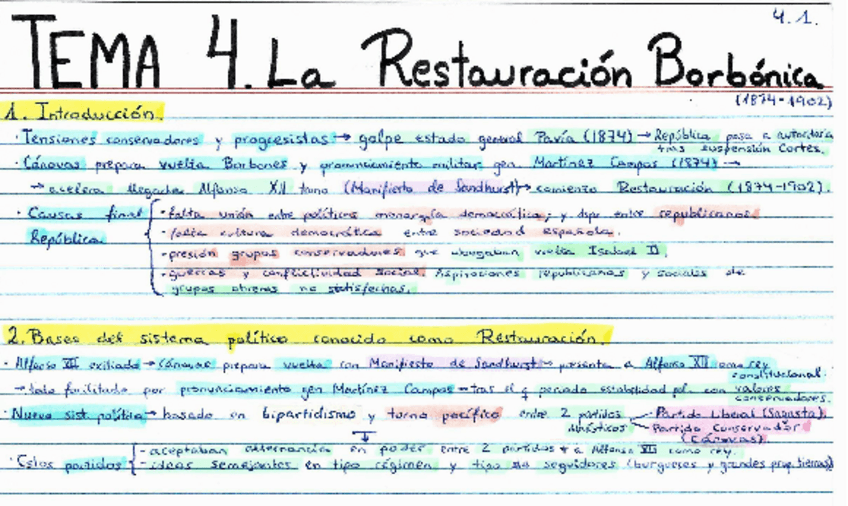 4.1.
TEMA 4. La Restauración Borbónica
(1874-1902)
1. Introducción.
· Tensiones conservadores y progresistas → golpe estado general Pavía (1874) → República pasa a autoritaria
tras suspensión Cortes.
· Cánovas prepara vuelta Borbones y pronunciamiento militar gen Martínez Campos (1874) →
→ acelera llegada Alfonso XII trono (Manifiesto de Sandhurst) → comienzo Restauración (1874-1902).
· Causas final República
- falta unión entre políticos monarquía democrática; y dif entre republicanos.
- falta cultura democrática entre sociedad española.
- presión grupos conservadores que abogaban vuelta Isabel II.
- guerras y conflictividad social. Aspiraciones republicanas y sociales de
grupos obreros no satisfechas.
2. Bases del sistema político conocido como Restauración.
· Alfonso XII exiliado → Cánovas prepara vuelta con Manifiesto de Sandhurst → presenta a Alfonso XII como rey
constitucional.
→ todo facilitado por pronunciamiento gen Martínez Campos → tras el q periodo estabilidad pol. con valores
conservadores.
· Nuevo sist. político → basado en bipartidismo y turno pacífico entre 2 partidos
dinásticos
Partido Liberal (Sagasta)
Partido Conservador
(Cánovas)
· Estos partidos
- aceptaban alternancia en poder entre 2 partidos + a Alfonso XII como rey.
- ideas semejantes en tipo régimen y tipo de seguidores (burgueses y grandes prop. tierras)